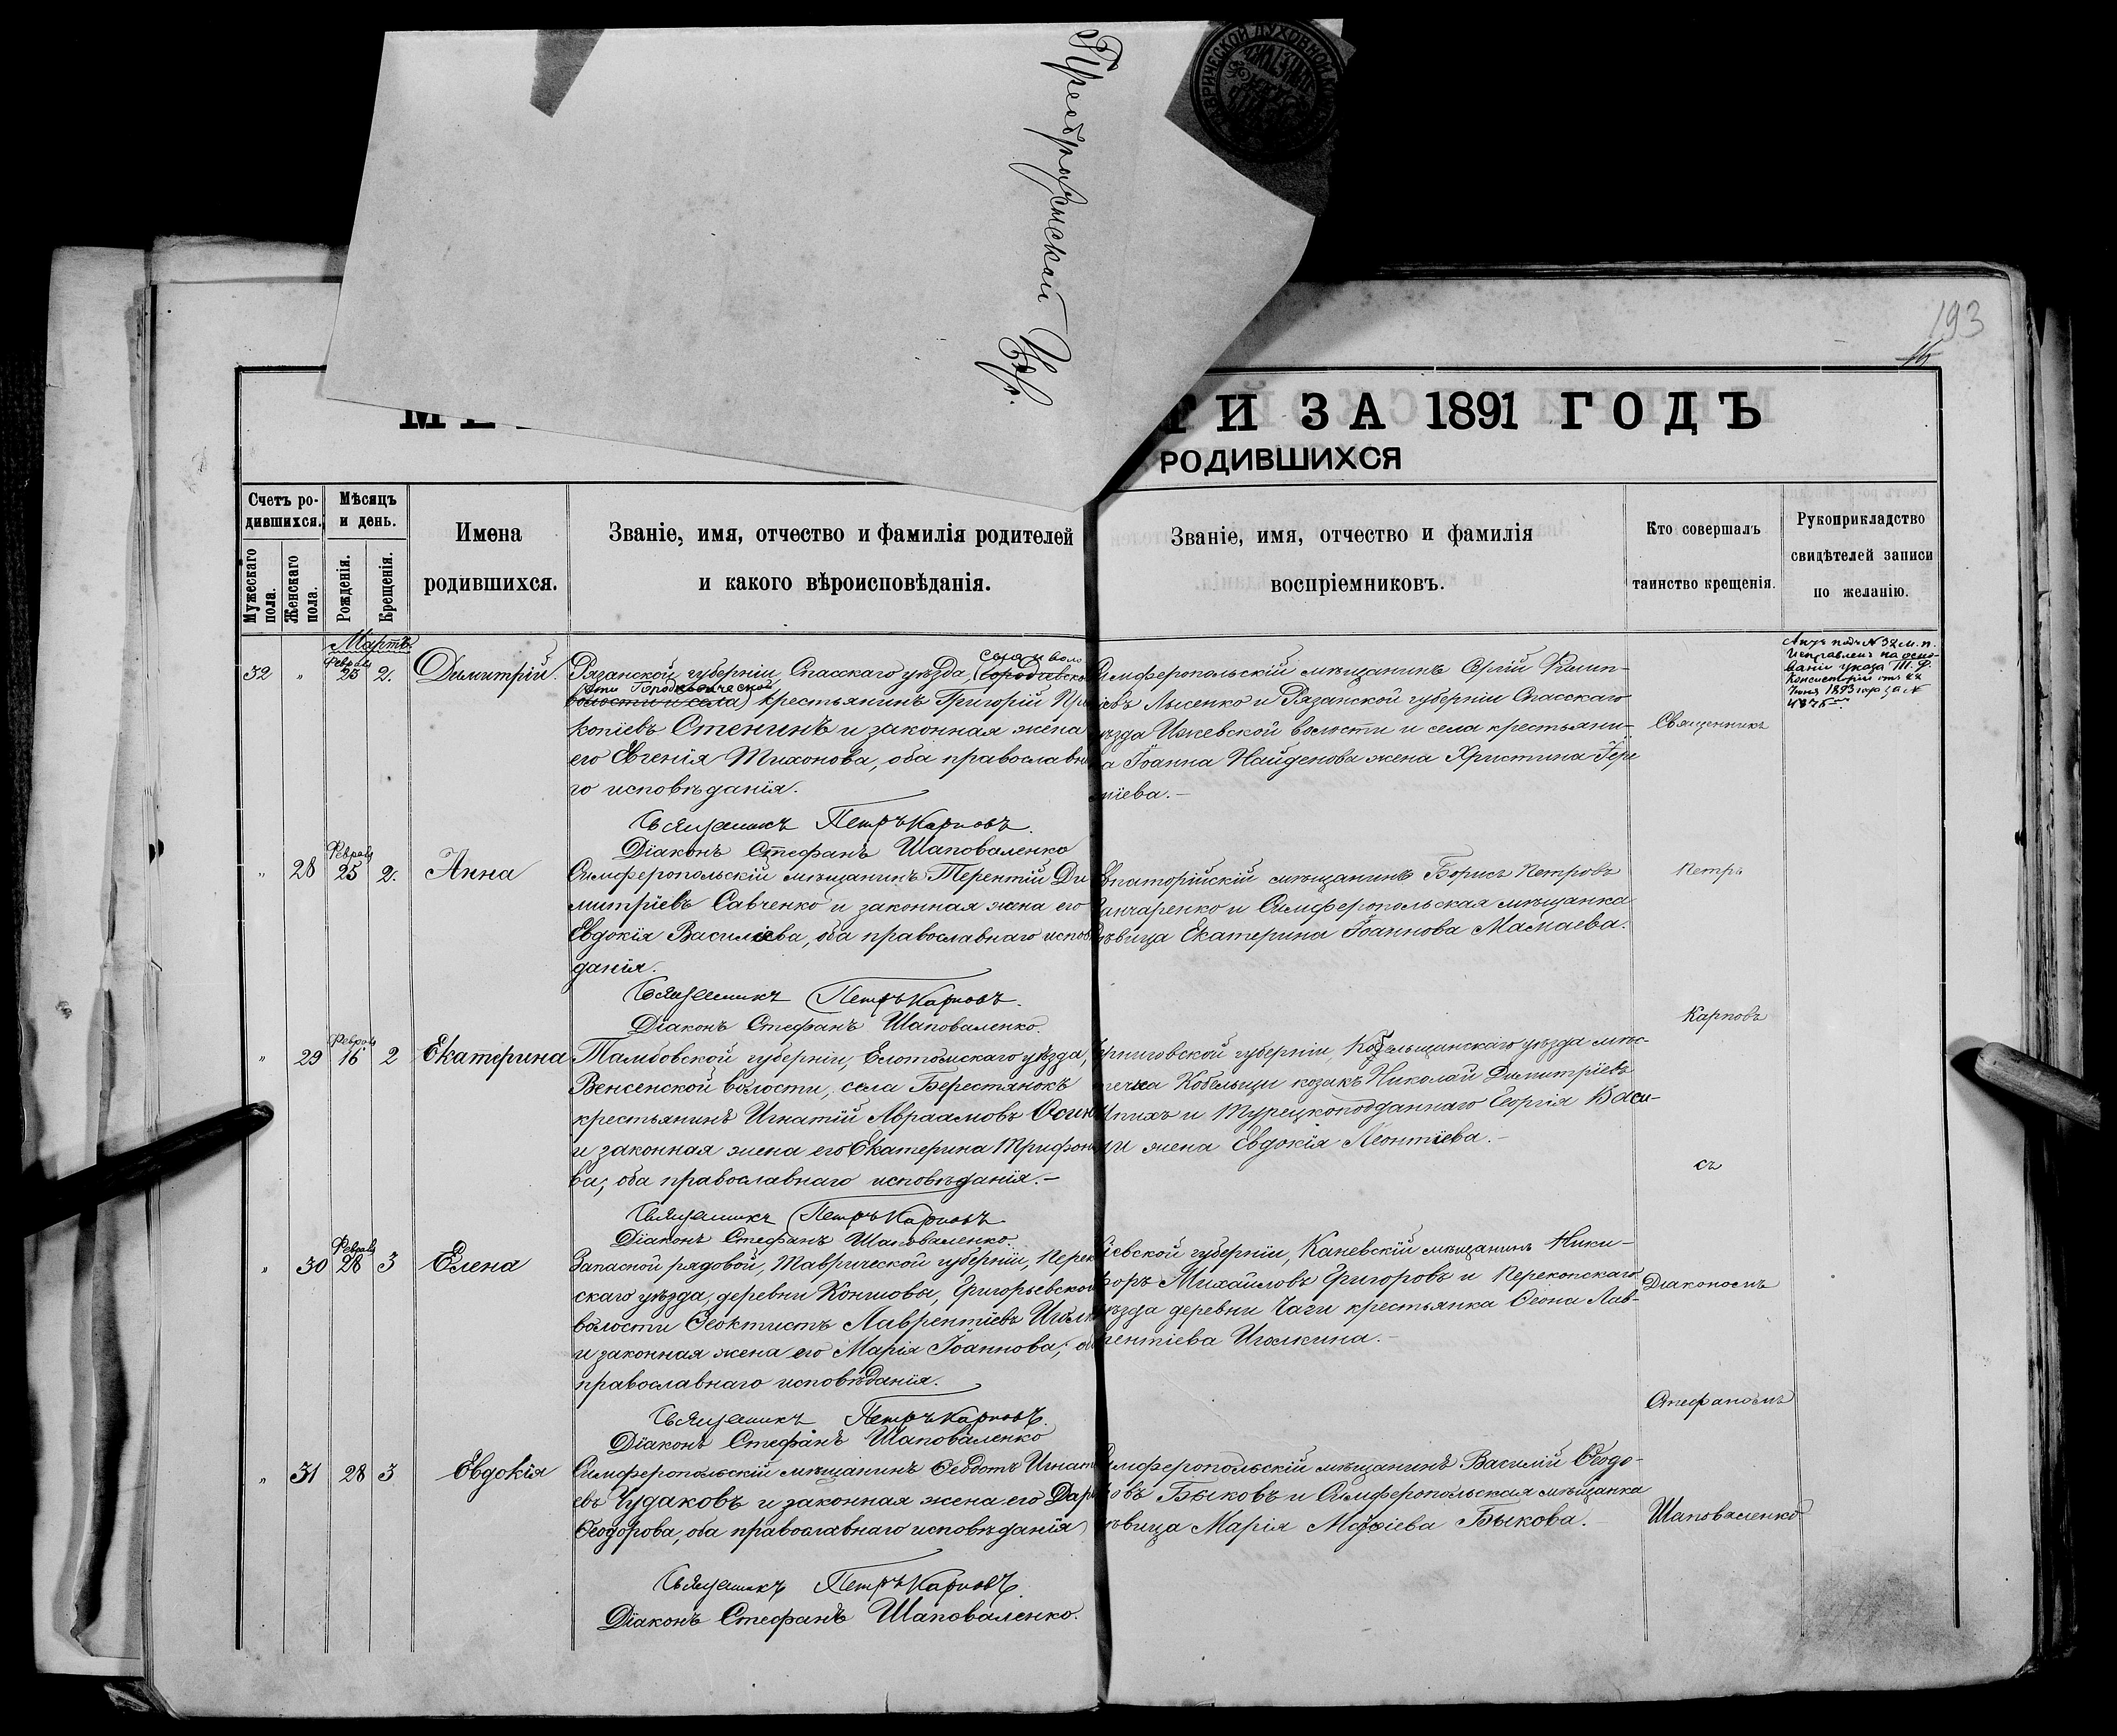 Преображенской Цер.
ТАВРИЧЕСКОЙ ДУХОВНОЙ
193
16
ТИ ЗА 1891 ГОДЪ
РОДИВШИХСЯ
Счетъ ро-
дившихся.
Мѣсяцъ
и день.
Мужескаго
пола.
Женскаго
пола.
Рожденія.
Крещенія.
Имена
родившихся.
Званіе, имя, отчество и фамилія родителей
и какого вѣроисповѣданія.
Званіе, имя, отчество и фамилія
воспріемниковъ.
Кто совершалъ
таинство крещенія.
Рукоприкладство
свидѣтелей записи
по желанію.
Мартъ
32 " Февраля 25 2. Димитрій.
села и воло
Рязанской губерніи, Спасскаго уѣзда, (Городевско
сти Городковической
волости и села) крестьянинъ Григорій Про
копіевъ Стенинъ и законная жена
его Евгенія Тихонова, оба православна
го исповѣданія.
Священникъ Петръ Карповъ.
Діаконъ Стефанъ Шаповаленко
Симферопольскій мѣщанинъ Сергій Филип-
іевъ Лысенко и Рязанской губерніи Спасскаго
уѣзда Ижевской волости и села крестьяни-
а Іоанна Найденова жена Христина Іере
міева.-
Актъ подъ № 32 м. п.
Исправленъ на осно-
ваніи указа Т. Д.
Консисторіи отъ 22
Іюня 1893 года за №
4875
" 28 Февраля 25 2. Анна
Симферопольскій мѣщанинъ Терентій Ди
митріевъ Савченко и законная жена его
Евдокія Василіева, оба православнаго исповѣ
данія.
Священникъ Петръ Карповъ.
Діаконъ Стефанъ Шаповаленко.
Евпаторійскій мѣщанинъ Борисъ Петровъ
Ганчаренко и Симферопольская мѣщанка
дѣвица Екатерина Іоаннова Мамаева.
" 29 Февраля 16 2 Екатерина
Тамбовской губерніи, Елатомскаго уѣзда,
Венсенской волости, села Берестянокъ
крестьянинъ Игнатій Авраамовъ Осин
и законная жена его Екатерина Трифоно
ва, оба православнаго исповѣданія.-
Священникъ Петръ Карповъ
Діаконъ Стефанъ Шаповаленко.
Черниговской губерніи, Кобельщанскаго уѣзда мѣс-
течка Кобельщи козакъ Николай Димитріевъ
и Турецкоподданнаго Георгія Васи-
жена Евдокія Леонтіева.-
" 30 Февраля 28 3 Елена
Запасной рядовой, Таврической губерніи, Переко
скаго уѣзда, деревни Кончловы, Григорьевской
волости Феоктистъ Лаврентіевъ Иголк
и законная жена его Марія Іоаннова, об
православнаго исповѣданія.
Священникъ Петръ Карповъ.
Діаконъ Стефанъ Шаповаленко
Кіевской губерніи, Каневскій мѣщанинъ Ники-
форъ Михайловъ Григоровъ и Перекопскаго
уѣзда деревни Чаги крестьянка Феона Лав-
рентіева Иголкина.-
" 31 28 3 Евдокія
Симферопольскій мѣщанинъ Феодотъ Игнат
евъ Чудаковъ и законная жена его Дарі
Феодорова, оба православнаго исповѣданія
Священникъ Петръ Карповъ.
Діаконъ Стефанъ Шаповаленко.
Симферопольскій мѣщанинъ Василій Феодо-
ровъ Быковъ и Симферопольская мѣщанка
дѣвица Марія Мафіева Быкова.
Священникъ
Петръ
Карповъ
съ
Діакономъ
Стефаномъ
Шаповаленко